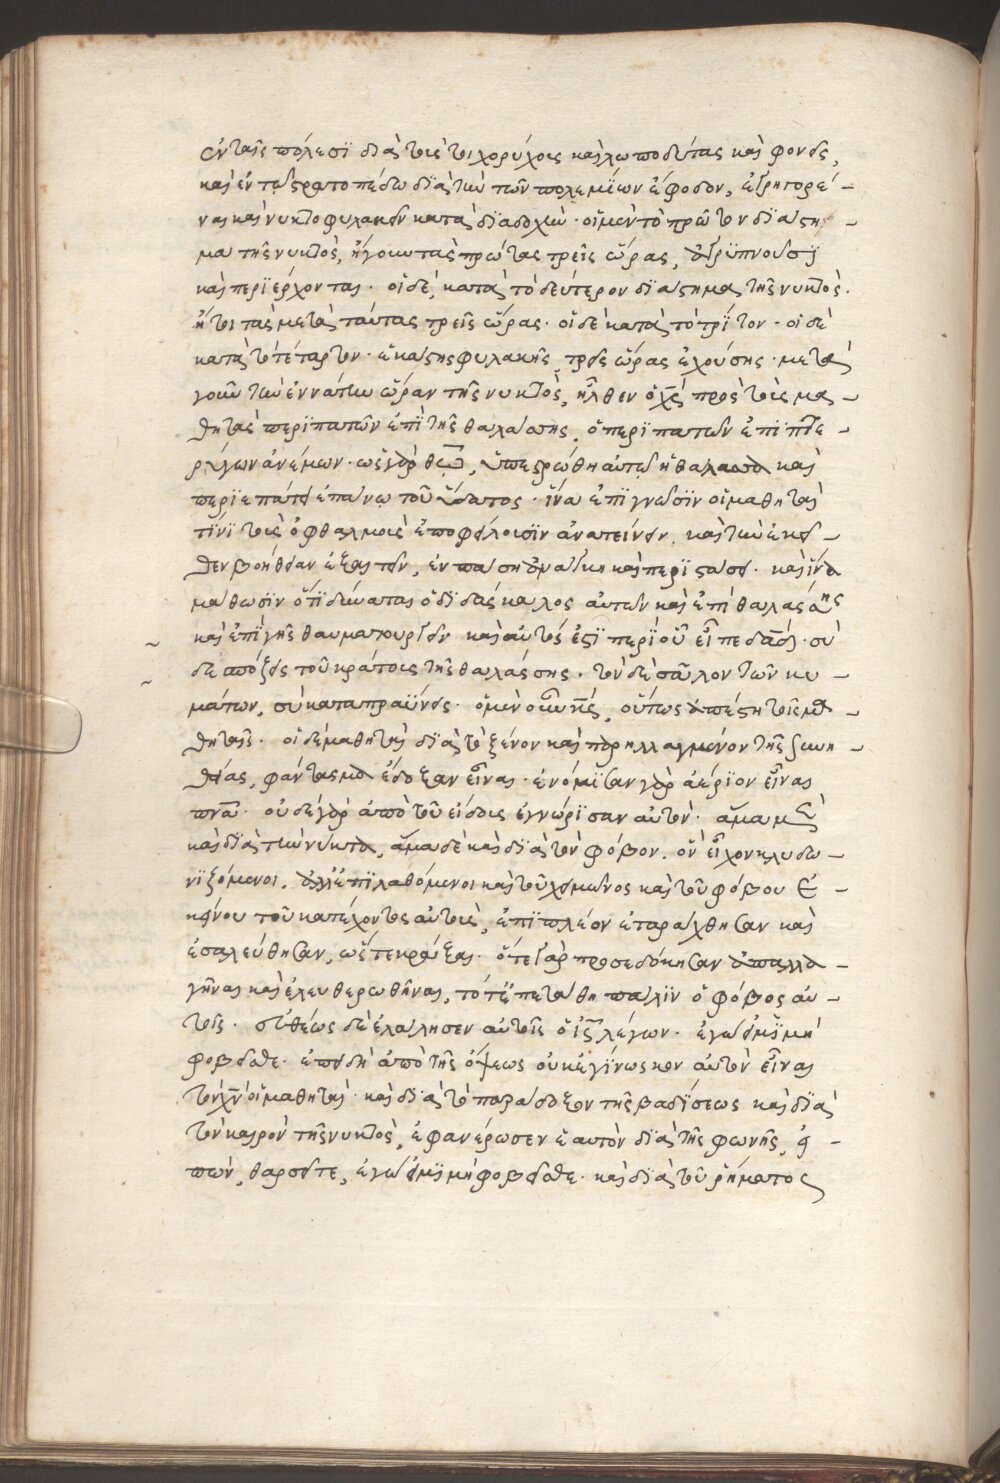 ἐν ταῖς πόλεσϊ διὰ τοὺς τοιχορύχους καὶ λωποδύτας καὶ φονεῖς,
καὶ ἐν τῷ στρατοπέδω διὰ τὴν τῶν πολεμΐων ἔφοδον, ἐγρηγορέ-
ναι καὶ νυκτοφυλακεῖν κατὰ διαδοχήν· οἱ μὲν τὸ πρῶτον διάστη-
μα τῆς νυκτὸς, ἤγουν τὰς πρώτας τρεῖς ὥρας, ἀγρϋπνοῦσϊ
καὶ περϊέρχονται· οἱ δὲ, κατὰ τὸ δεύτερον διάστημα τῆς νυκτὸς·
ἤτοι τὰς μετὰ ταύτας τρεῖς ὥρας· οἱ δὲ κατὰ τὸ τρΐτον· οἱ δὲ
κατὰ τὸ τέταρτον· ἑκάστης φυλακῆς, τρεῖς ὥρας ἐχούσης· μετὰ
γοῦν τὴν ἐννάτην ὥραν τῆς νυκτὸς, ἦλθεν ὁ χς πρὸς τοὺς μα-
θητὰς περϊπατῶν ἐπῒ τῆς θαλάσσης, ὁ περϊπατῶν ἐπῒ πτε-
ρύγων ἀνέμων· ὡς γὰρ θεῷ, ὑπεστρώθη αὐτῷ ἡ θάλασσα καὶ
περϊεπάτει ἐπάνω τοῦ ὕδατος· ἵνα ἐπϊγνῶσϊν οἱ μαθηταὶ
τΐνϊ τοὺς ὀφθαλμοὺς ἐποφείλουσϊν ἀνατείνειν, καὶ τὴν ἐκεῖ-
θεν βοήθειαν ἐξαιτεῖν, ἐν πάση ἀνάγκη καὶ περϊστάσει· καὶ ἵνα
μάθωσϊν ὅτϊ δύναται ὁ διδάσκαλος αὐτῶν καὶ ἐπὶ θαλάσσης
καὶ ἐπῒ γῆς θαυματουργεῖν καὶ αὐτός ἐστϊ περῒ οὗ εἶπε δαδ· σὺ
δεσπόζεις τοῦ κράτους τῆς θαλάσσης· τὸν δὲ σάλον τῶν κυ-
μάτων, σὺ καταπραΰνεις· ὁ μὲν οὖν ις, οὕτως ἐπέστη τοῖς μα
θηταῖς· οἱ δὲ μαθηταὶ διὰ τὸ ξένον καὶ παρηλλαγμένον τῆς συνη
θείας, φάντασμα ἔδοξαν εἶναι· ἐνόμϊσαν γὰρ ἀέρϊον εἶναι
πνα· οὐδὲ γὰρ ἀπὸ τοῦ εἴδους ἐγνώρϊσαν αὐτὸν· ἅμα μὲν
καὶ διὰ τὴν νύκτα, ἅμα δὲ καὶ διὰ τὸν φόβον, ὃν εἶχον κλυδω-
νϊζόμενοι. ἀλλ' ἐπϊλαθόμενοι καὶ τοῦ χειμῶνος καὶ τοῦ φόβου ἐ-
κείνου τοῦ κατέχοντος αὐτοὺς, ἐπῒ πλέον ἐταράχθησαν καὶ
ἐσαλεύθησαν, ὥστε κράξαι· ὅτε γὰρ προσεδόκησαν ἀπαλλα-
γῆναι καὶ ἐλευθερωθῆναι, τότε ἐπετάθη πάλϊν ὁ φόβος αὐ-
τοῖς· εὐθέως δὲ ἐλάλησεν αὐτοῖς ὁ ις λέγων· ἐγώ εἰμϊ μὴ
φοβεῖσθε· ἐπειδὴ ἀπὸ τῆς ὄψεως οὐκ ἐγίνωσκον αὐτὸν εἶναι
τὸν χν οἱ μαθηταὶ· καὶ διὰ τὸ παράδοξον τῆς βαδΐσεως καὶ διὰ
τὸν καιρὸν τῆς νυκτὸς, ἐφανέρωσεν ἑαυτὸν διὰ τῆς φωνῆς, εἰ-
πὼν, θαρσεῖτε, ἐγώ εἰμϊ μὴ φοβεῖσθε· καὶ διὰ τοῦ ῥήματος